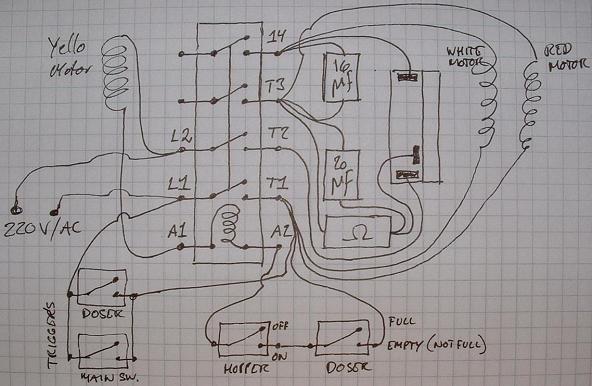 Yello
Motor
14
16
µf
WHITE
MOTOR
RED
MOTOR
T3
L2
T2
20
µf
L1
T1
220 V/AC
A1
A2
Ω
TRIGGERS
DOSER
MAIN SW.
OFF
ON
HOPPER
DOSER
FULL
EMPTY (NOT FULL)